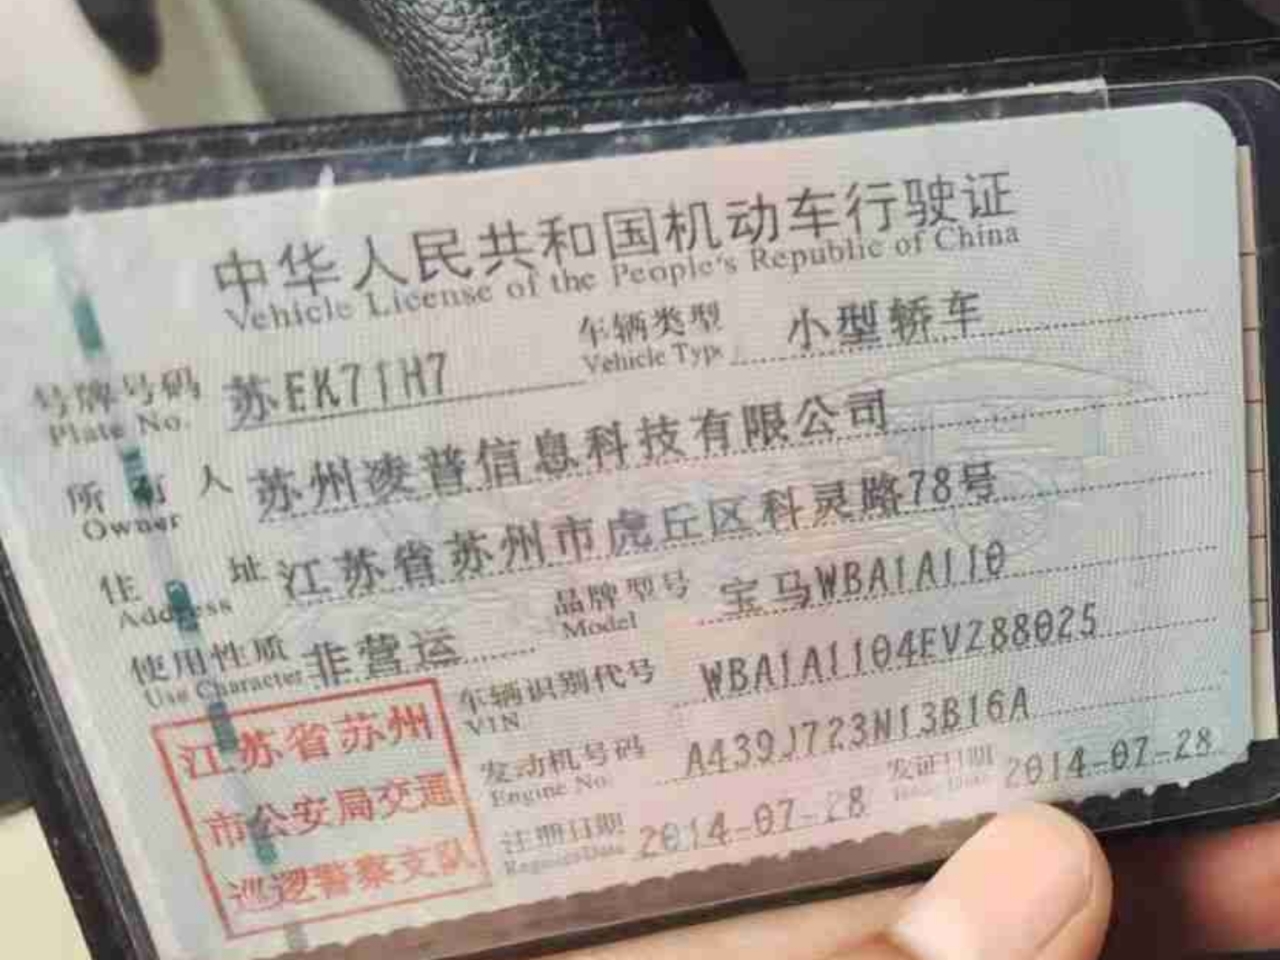 中华人民共和国机动车行驶证
Vehicle License of the People's Republic of China
号牌号码 苏EK71H7 车辆类型 小型轿车
Plate No. Vehicle Type
所有人 苏州凌普信息科技有限公司
Owner
住址 江苏省苏州市虎丘区科灵路78号
Address
使用性质 非营运 品牌型号 宝马WBA1A110
Use Character Model
车辆识别代号 WBA1A1104EVZ88025
VIN
发动机号码 A439J723N13B16A
Engine No.
注册日期 2014-07-28 发证日期 2014-07-28
Register Date Issue Date
江苏省苏州
市公安局交通
巡逻警察支队